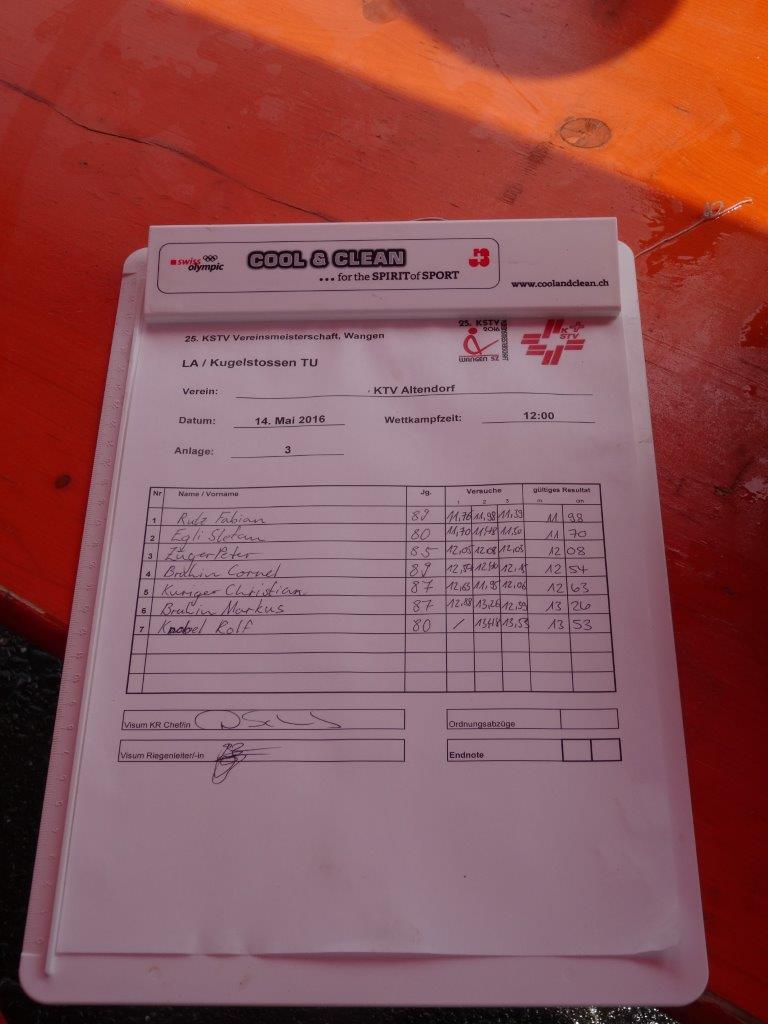 swiss olympic COOL & CLEAN
... for the SPIRIT of SPORT
www.coolandclean.ch
25. KSTV Vereinsmeisterschaft, Wangen
25. KSTV 2016
WANGEN SZ
K STV
LA / Kugelstossen TU
Verein: KTV Altendorf
Datum: 14. Mai 2016 Wettkampfzeit: 12:00
Anlage: 3
Nr Name / Vorname Jg. Versuche gültiges Resultat
1 2 3 m cm
1 Rutz Fabian 89 11,76 11,98 11,39 11 98
2 Egli Stefan 80 11,70 11,50 11 70
3 Züger Peter 85 12,05 12,08 12,03 12 08
4 Bruhin Cornel 89 12,54 12 54
5 Kuriger Christian 87 12,63 11,95 12,06 12 63
6 Bruhin Markus 87 12,88 13,26 12,59 13 26
7 Knobel Rolf 80 / 13,18 13,53 13 53
Visum KR Chef/in Ordnungsabzüge
Visum Riegenleiter/-in Endnote